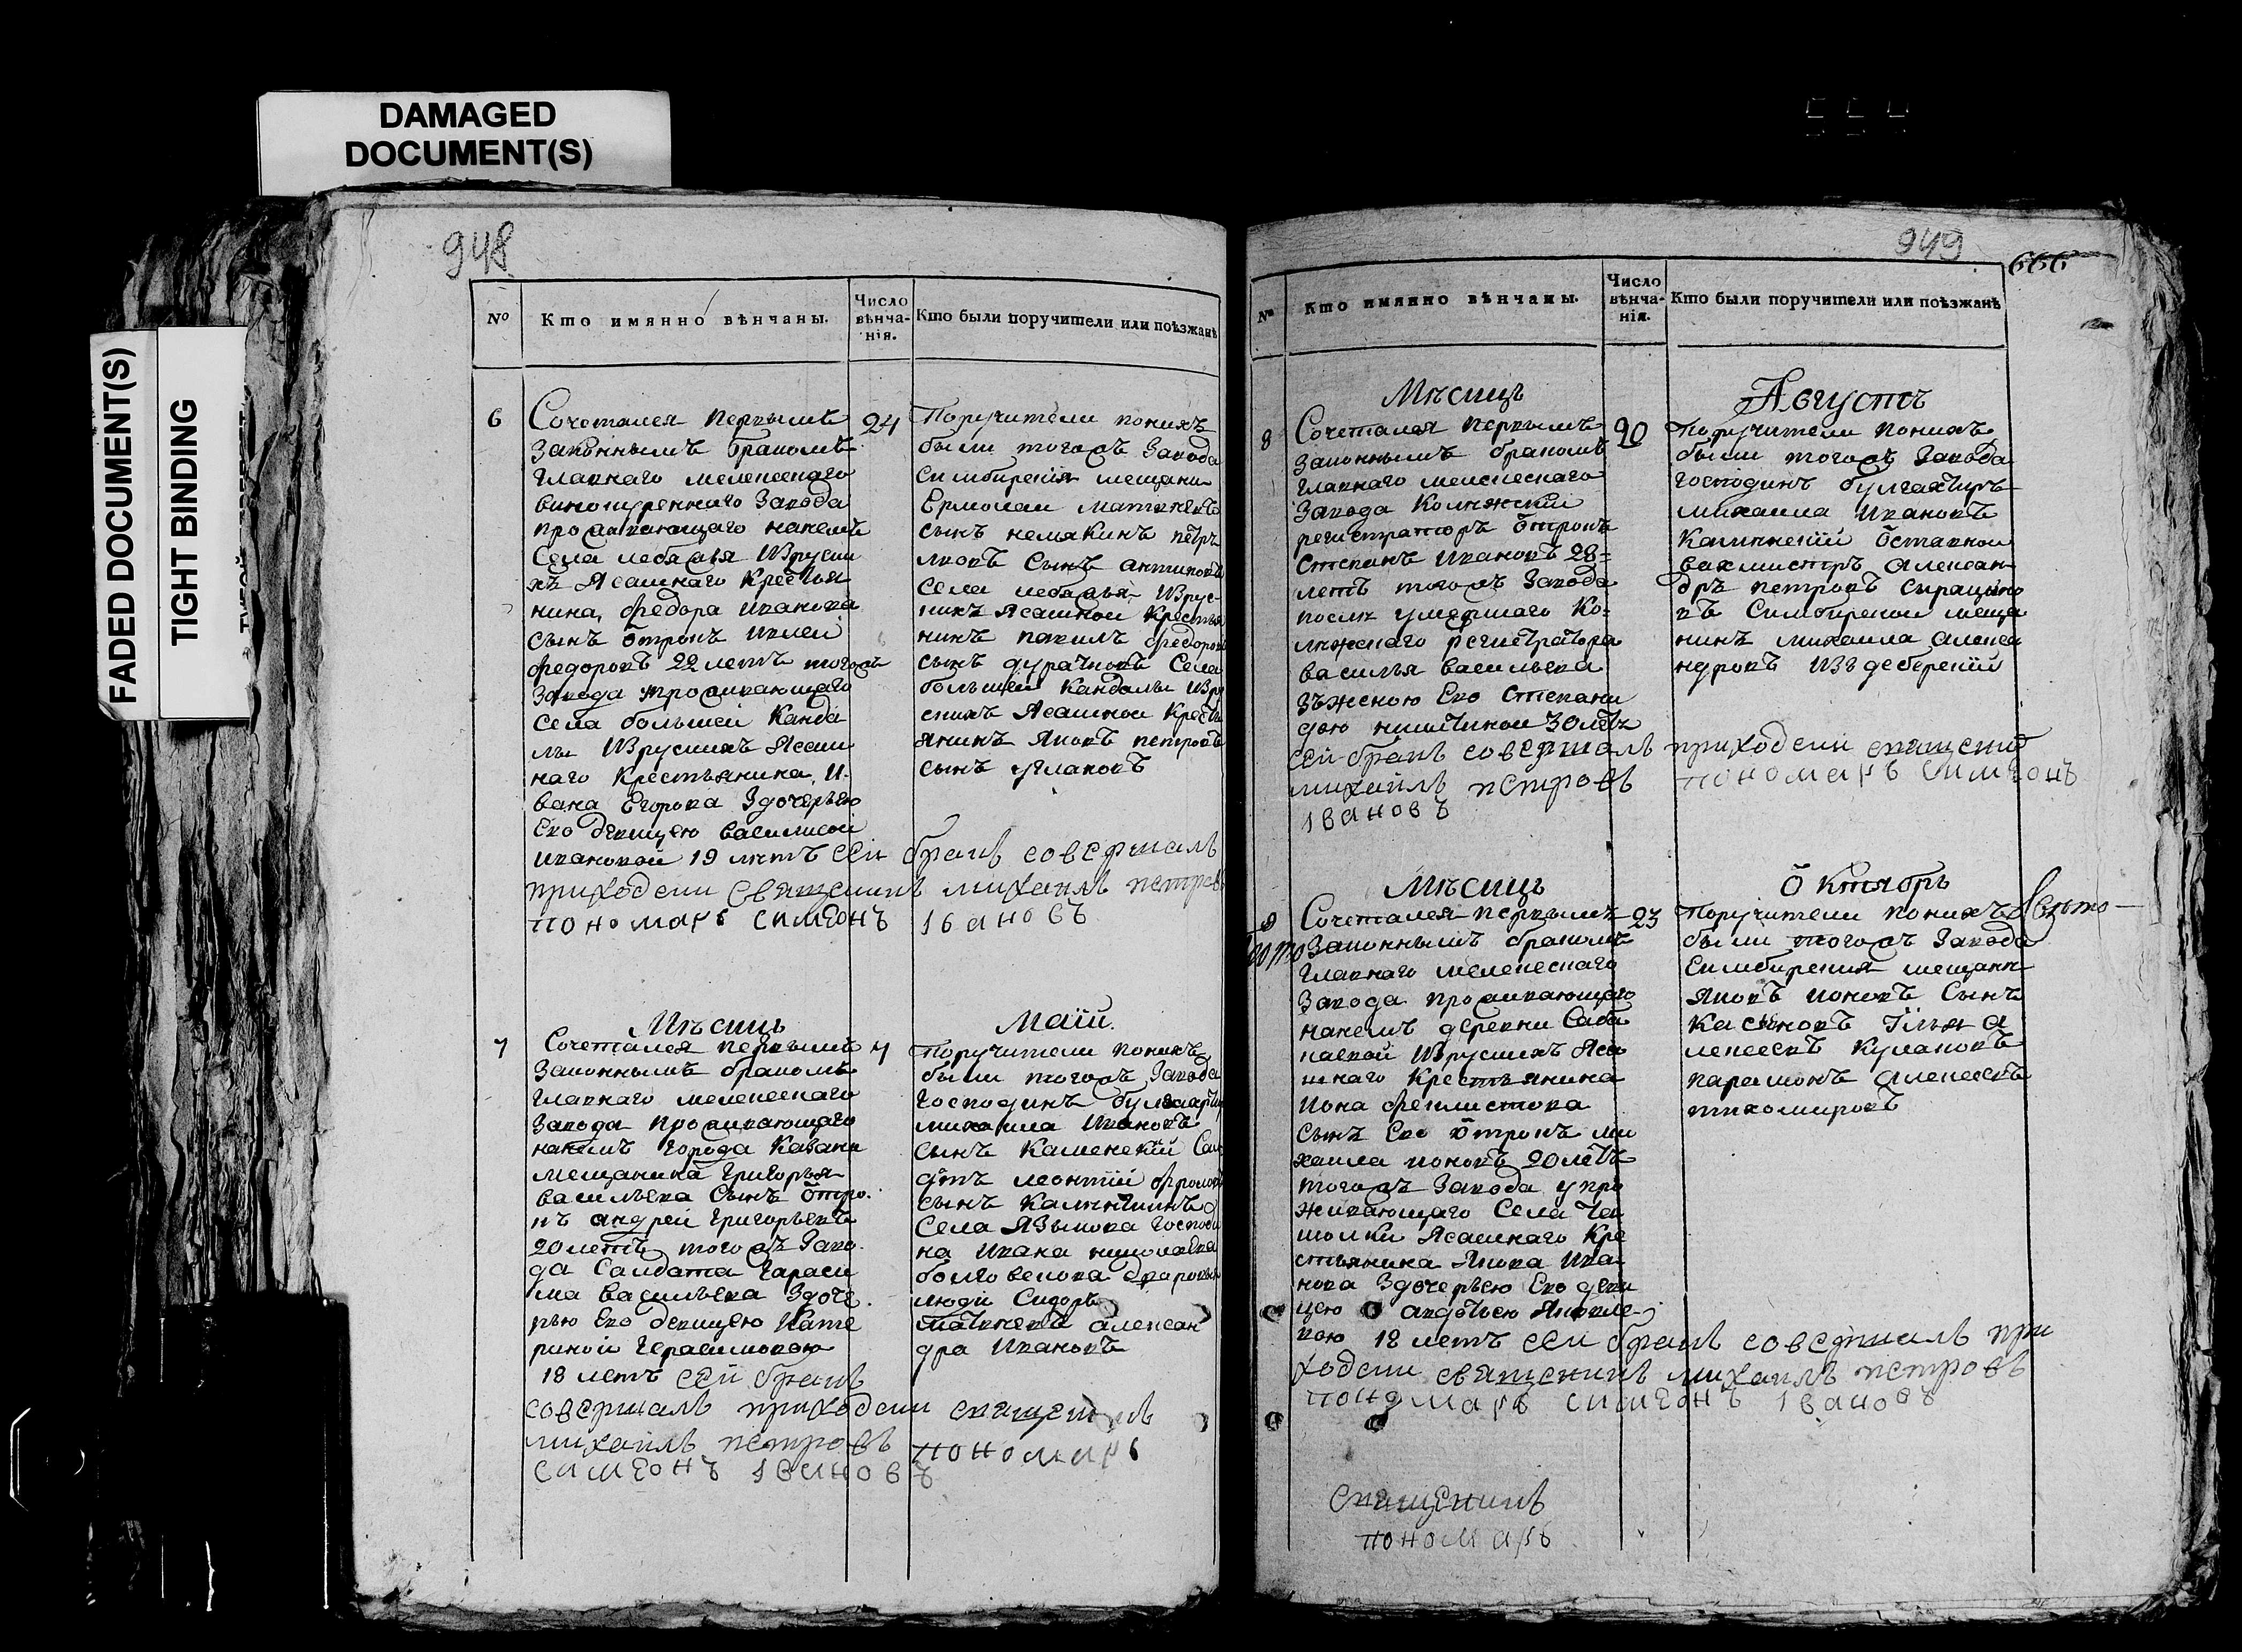 DAMAGED
DOCUMENT(S)
FADED DOCUMENT(S)
TIGHT BINDING
948
№
Кто имянно вѣнчаны.
Число
вѣнча-
нія.
Кто были поручители или поѣзжанѣ
6
Сочетался первымъ
законнымъ бракомъ
главнаго мелекескаго
винокуреннаго завода
проживающаго нанемъ
села лебяжья Изруски
хъ Ясашнаго Крестья
нина, федора иванова
сынъ отрокъ
федоровъ 22 летъ тогожъ
завода проживающаго
села большей Канда
лы Изрускихъ Ясаш
наго Крестьянина И-
вана Егорова Здочерью
Ево девицею василисой
ивановой 19 летъ сеи бракъ совершалъ
приходскии священникъ михаилъ петровъ
пономарь симеонъ iвановъ
24
Поручители понихъ
были тогожъ завода
симбирския мещани
Ермолаи матвеевъ
сынъ немакинъ петръ
сынъ антиповъ
села лебяжья Изрус-
кихъ Ясашнои Крестья
нинъ вавилъ федоровъ
сынъ дурачковъ Села
большей Кандалы Изру
скихъ Ясашнои Кресть
янинъ Яковъ петровъ
сынъ
Мѣсицъ
Маiй.
7
Сочетался первымъ
законнымъ бракомъ
главнаго мелекескаго
завода проживающаго
нанемъ города Казани
мещанина Григорья
васильева Сынъ отро-
къ андреи григорьевъ
20 летъ тогожъ заво-
да Салдата гараси
ма васильева Здоче-
рью Ево девицею Кате
риной Герасимовою
18 летъ сеи бракъ
совершалъ приходскии священникъ
михаилъ петровъ пономарь
симеонъ iвановъ
7
Поручители понихъ
были тогожъ завода
господинъ бухгалтиръ
михаила ивановъ
сынъ Каменскiй Сал
датъ леонтiй
сынъ
Села Языкова господи
на ивана николаева
дворовыя
люди Сидоръ
матвеевъ алексан
дра ивановъ
949
666
№
Кто имянно вѣнчаны.
Число
вѣнча-
нія.
Кто были поручители или поѣзжанѣ
Мѣсицъ
Августъ
8
Сочетался первымъ
законнымъ бракомъ
главнаго мелекескаго
завода Колежский
регистраторъ отрокъ
Степанъ ивановъ 28-
летъ тогожъ завода
после умершаго Ко-
лежскаго регистратора
василья васильева
зъженою Ево Степани
дою никитиной 30 летъ
сеи бракъ совершалъ приходскии священикъ
михаилъ петровъ пономарь симеонъ
iвановъ
20
Поручители понихъ
были тогожъ завода
господинъ булгахтиръ
михаила ивановъ
Каменскiй отставнои
вахмистръ алексан
дръ петровъ
въ симбирскои меща
нинъ михаила алекса
ндровъ
Мѣсицъ
Октябрь
9
Сочетался первымъ
законнымъ бракомъ
главнаго мелекескаго
завода проживающаго
нанемъ деревни Саба
каевой Изрускихъ Яса
шнаго Крестьянина
Иона феклистова
сынъ Ево отрокъ ми
хаила ионовъ 20 летъ
тогожъ завода у про
живающаго Села
Ясашнаго Кре
стьянина Якова ива
нова Здочерью Ево деви
цею авдотьею Яковле-
вою 18 летъ сеи бракъ совершалъ при
ходскии священикъ михаилъ петровъ
пономарь симеонъ iвановъ
23
Поручители понихъ
были тогожъ завода
симбирския мещани
Яковъ ионовъ Сынъ
Касяновъ Iлья а
лексеевъ Кулаковъ
парамонъ алексеевъ
тихомировъ
священникъ
пономарь